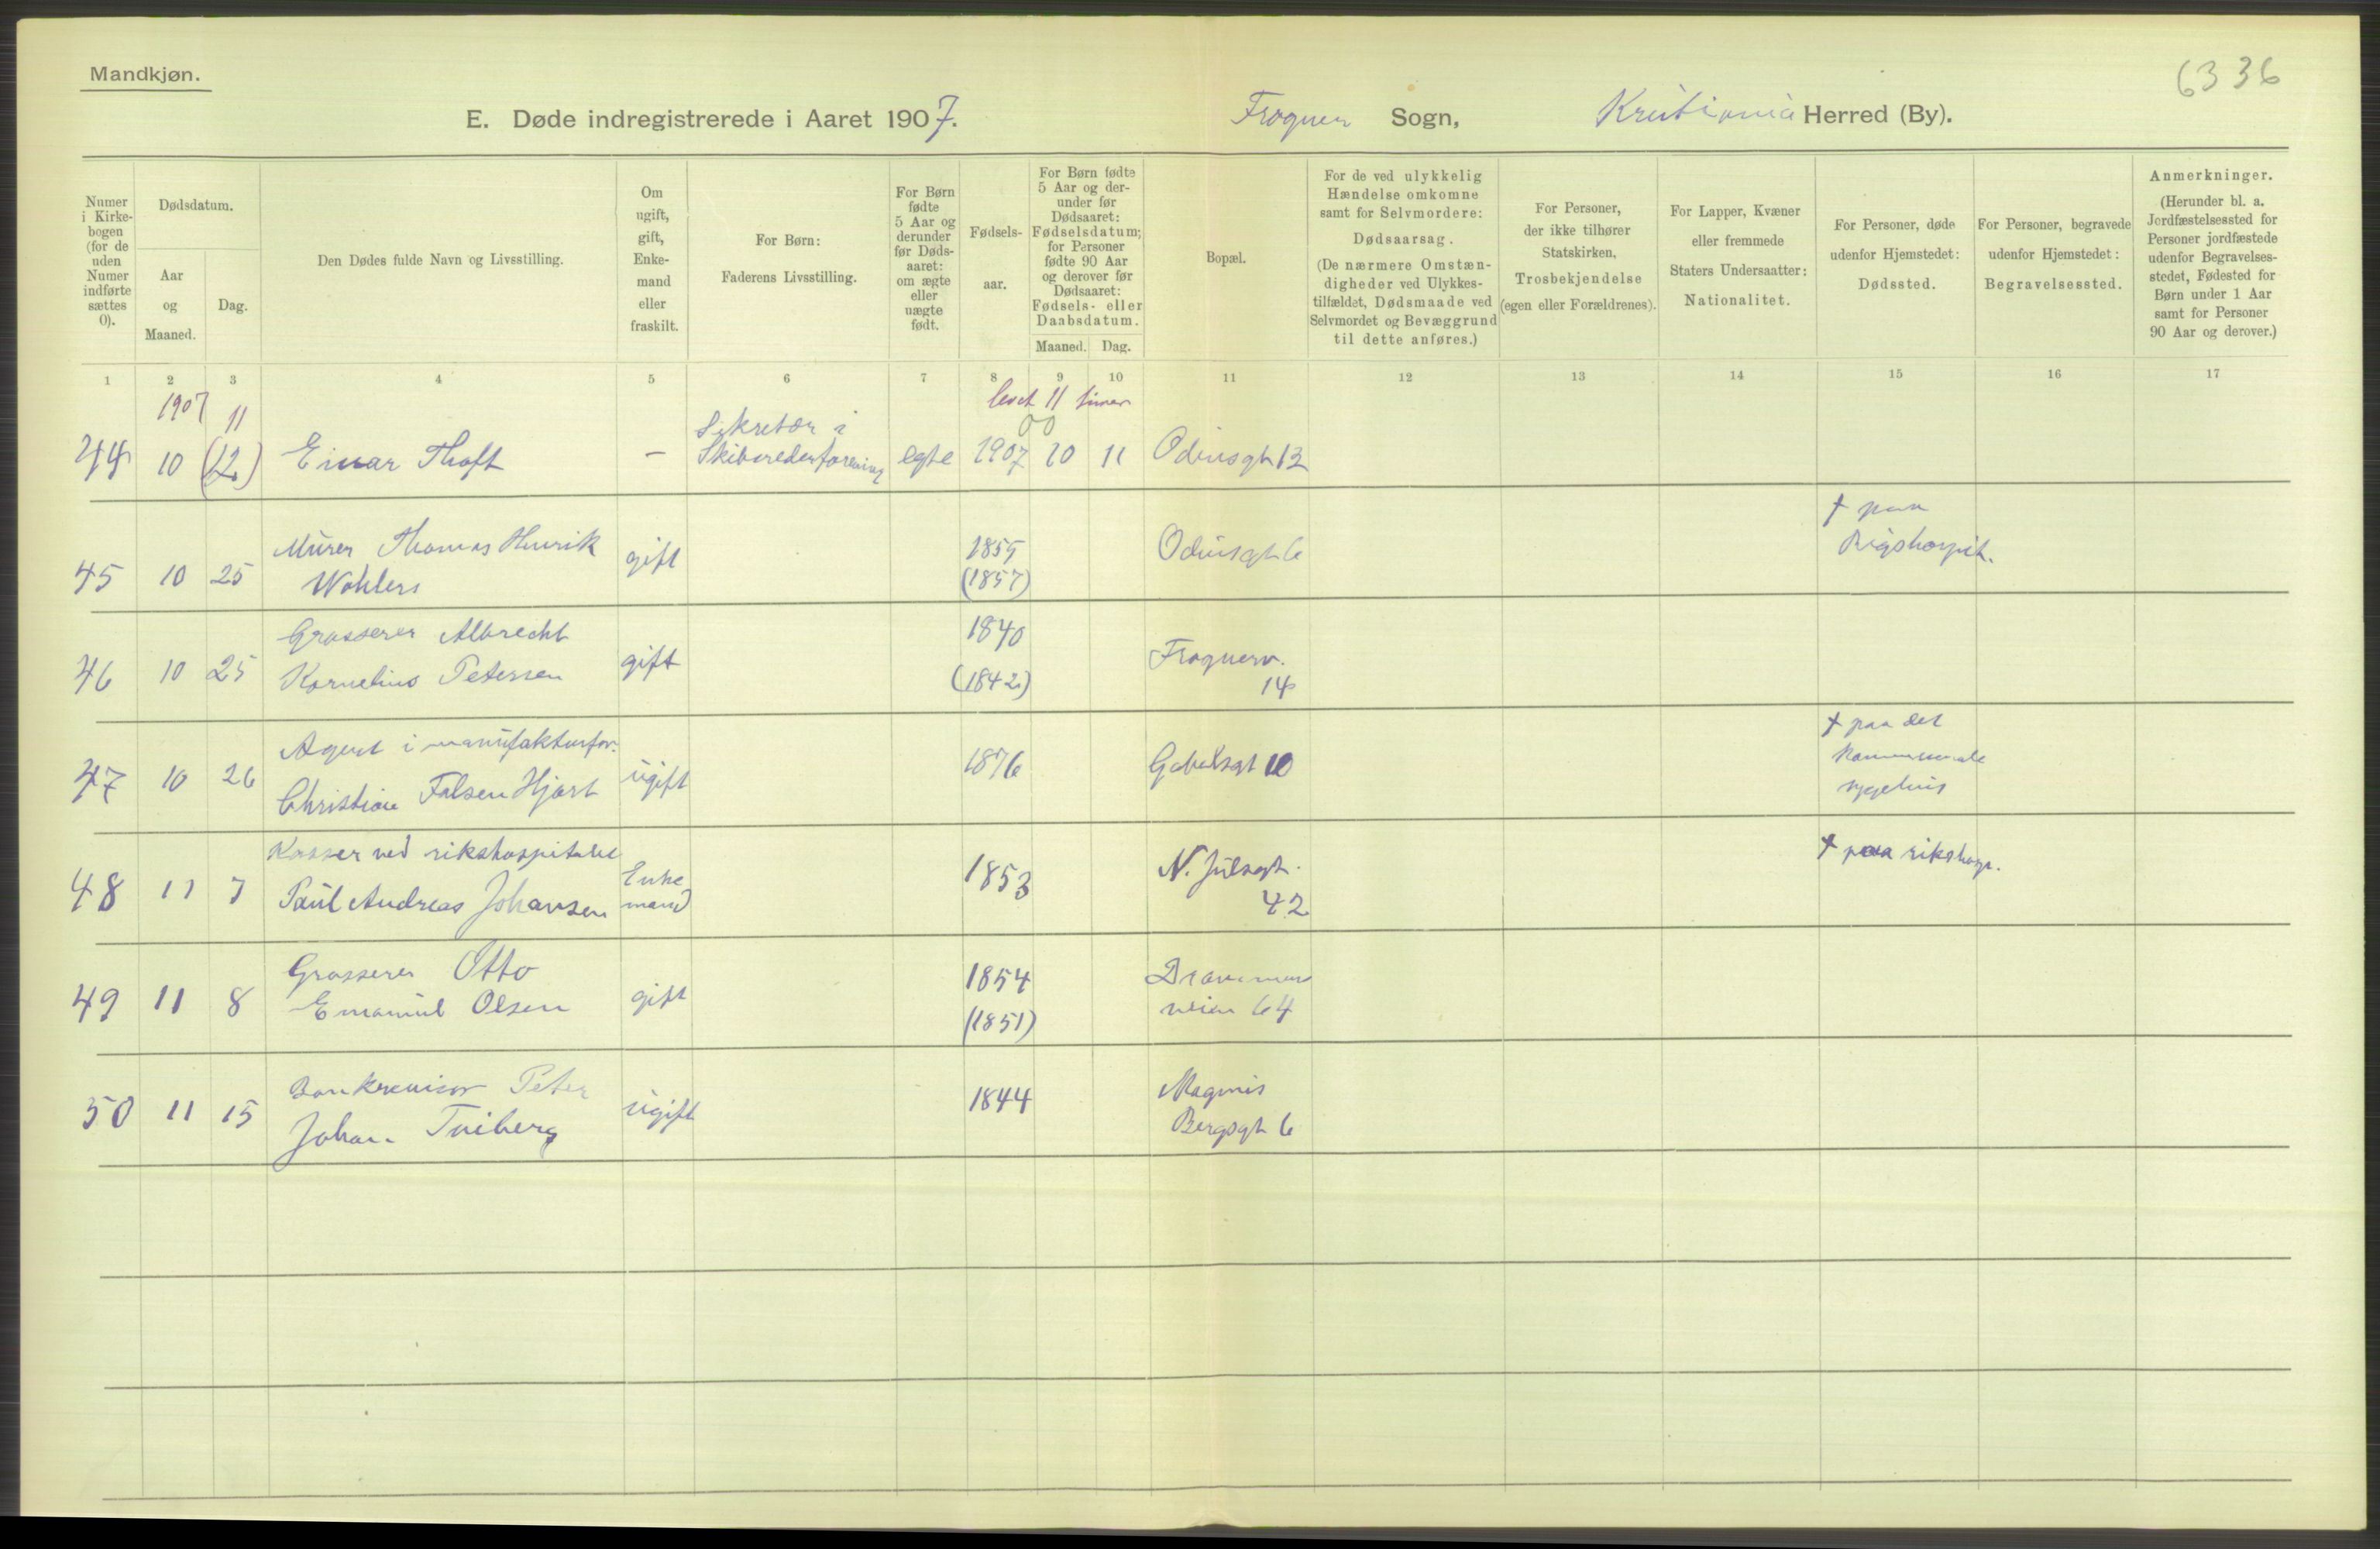 Mandkjøn.
6336
E. Døde indregistrerede i Aaret 1907. Frogner Sogn, Kristiania Herred (By).
Numer i Kirkebogen (for de uden Numer indførte sættes 0).
Dødsdatum.
Aar og Maaned.
Dag.
Den Dødes fulde Navn og Livsstilling.
Om ugift, gift, Enkemand eller fraskilt.
For Børn:
Faderens Livsstilling.
For Børn fødte 5 Aar og derunder før Dødsaaret: om ægte eller uægte født.
Fødselsaar.
For Børn fødte 5 Aar og derunder før Dødsaaret: Fødselsdatum; for Personer fødte 90 Aar og derover før Dødsaaret: Fødsels- eller Daabsdatum.
Maaned. Dag.
Bopæl.
For de ved ulykkelig Hændelse omkomne samt for Selvmordere:
Dødsaarsag.
(De nærmere Omstændigheder ved Ulykkestilfældet, Dødsmaade ved Selvmordet og Bevæggrund til dette anføres.)
For Personer, der ikke tilhører Statskirken,
Trosbekjendelse
(egen eller Forældrenes).
For Lapper, Kvæner eller fremmede Staters Undersaatter:
Nationalitet.
For Personer, døde udenfor Hjemstedet:
Dødssted.
For Personer, begravede udenfor Hjemstedet:
Begravelsessted.
Anmerkninger.
(Herunder bl. a. Jordfæstelsessted for Personer jordfæstede udenfor Begravelsesstedet, Fødested for Børn under 1 Aar samt for Personer 90 Aar og derover.)
1 2 3 4 5 6 7 8 9 10 11 12 13 14 15 16 17
1907 11 levet 11 timer
Sekretær i 00
44 10 (12) Einar Thoft – Skibsrederforening egte 1907 10 11 Odinsgt 13
† paa
Murer Thomas Henrik gift 1855 Odinsgt 6 Rigshospit.
45 10 25 Wohlers (1857)
Grosserer Albrecht 1840
46 10 25 Kornelius Petersen gift (1842) Frognerv. 14
Agent i manufakturfor. † paa det
47 10 26 Christian Falsen Hjort ugift 1876 Gabelsgt 10 kommunale
sygehus
Kasser ved rikshospitalet † paa rikshosp.
48 11 7 Paul Andreas Johansen Enkemand 1853 N. Julsgt. 42
Grosserer Otto 1854 Drammens
49 11 8 Emanuel Olsen gift (1851) veien 64
Bankrevisor Peter Magnus
50 11 15 Johan ugift 1844 Bergsgt 6